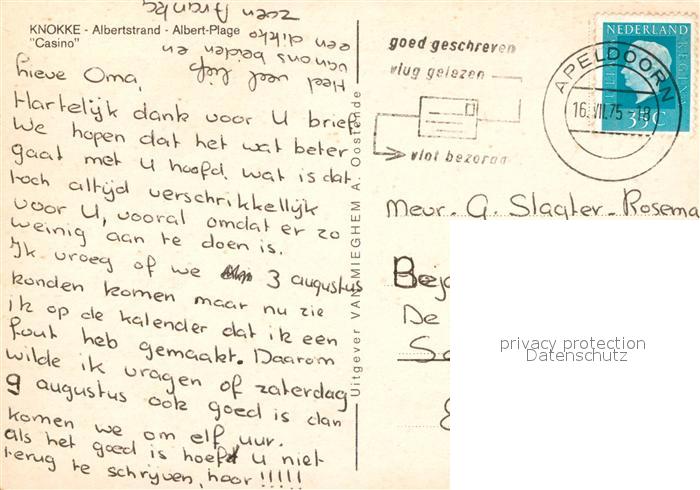 KNOKKE - Albertstrand - Albert-Plage
"Casino"
Lieve Oma,
Hartelijk dank voor U brief
We hopen dat het wat beter
gaat met U hoofd. wat is dat
toch altijd verschrikkelijk
voor U, vooral omdat er zo
weinig aan te doen is.
Ik vroeg of we 3 augustus
konden komen maar nu zie
ik op de kalender dat ik een
fout heb gemaakt. Daarom
wilde ik vragen of zaterdag
9 augustus ook goed is dan
komen we om elf uur.
als het goed is hoeft U niet
terug te schrijven, hoor !!!!!
Heel veel liefs
van ons beiden en
een dikke
zoen Aranka
Uitgever VAN MIEGHEM A. Oostende
goed geschreven
vlug gelezen
vlot bezorgd
APELDOORN
16.VII.75 -18
NEDERLAND
35 C
Mevr. G. Slagter-Rosema
Beja
De
So
privacy protection
Datenschutz